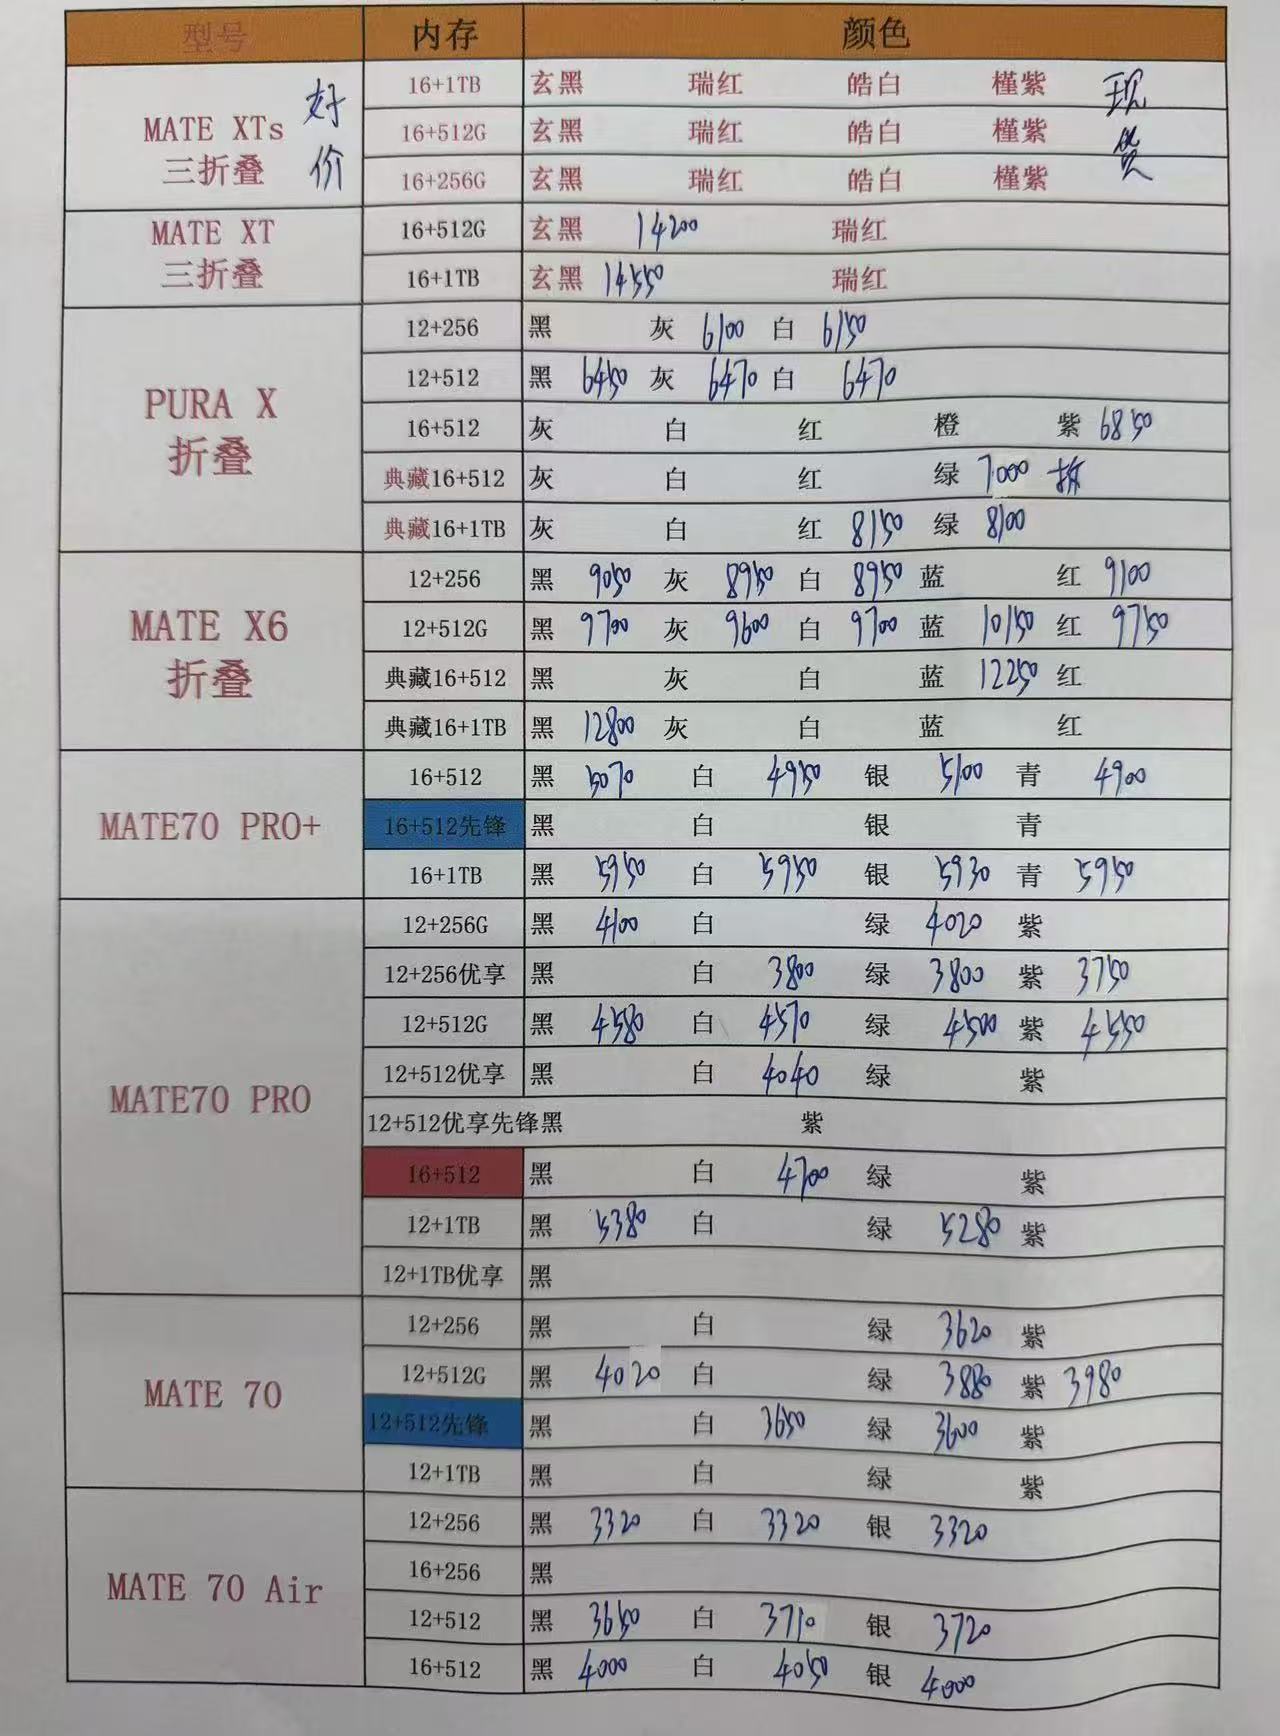 型号 内存 颜色
MATE XTs 三折叠 好价 现货
16+1TB 玄黑 瑞红 皓白 槿紫
16+512G 玄黑 瑞红 皓白 槿紫
16+256G 玄黑 瑞红 皓白 槿紫
MATE XT 三折叠
16+512G 玄黑 14200 瑞红
16+1TB 玄黑 14550 瑞红
PURA X 折叠
12+256 黑 灰 6100 白 6150
12+512 黑 6450 灰 6470 白 6470
16+512 灰 白 红 橙 紫 6850
典藏16+512 灰 白 红 绿 7000 拆
典藏16+1TB 灰 白 红 8150 绿 8100
MATE X6 折叠
12+256 黑 9050 灰 8950 白 8950 蓝 红 9100
12+512G 黑 9700 灰 9600 白 9700 蓝 10150 红 9750
典藏16+512 黑 灰 白 蓝 12250 红
典藏16+1TB 黑 12800 灰 白 蓝 红
MATE70 PRO+
16+512 黑 5070 白 4950 银 5100 青 4900
16+512先锋 黑 白 银 青
16+1TB 黑 5950 白 5950 银 5930 青 5950
MATE70 PRO
12+256G 黑 4100 白 绿 4020 紫
12+256优享 黑 白 3800 绿 3800 紫 3750
12+512G 黑 4580 白 4570 绿 4500 紫 4550
12+512优享 黑 白 4040 绿 紫
12+512优享先锋黑 紫
16+512 黑 白 4700 绿 紫
12+1TB 黑 5380 白 绿 5280 紫
12+1TB优享 黑
MATE 70
12+256 黑 白 绿 3620 紫
12+512G 黑 4020 白 绿 3880 紫 3980
12+512先锋 黑 白 3650 绿 3600 紫
12+1TB 黑 白 绿 紫
MATE 70 Air
12+256 黑 3320 白 3320 银 3320
16+256 黑
12+512 黑 3650 白 3710 银 3720
16+512 黑 4000 白 4050 银 4000